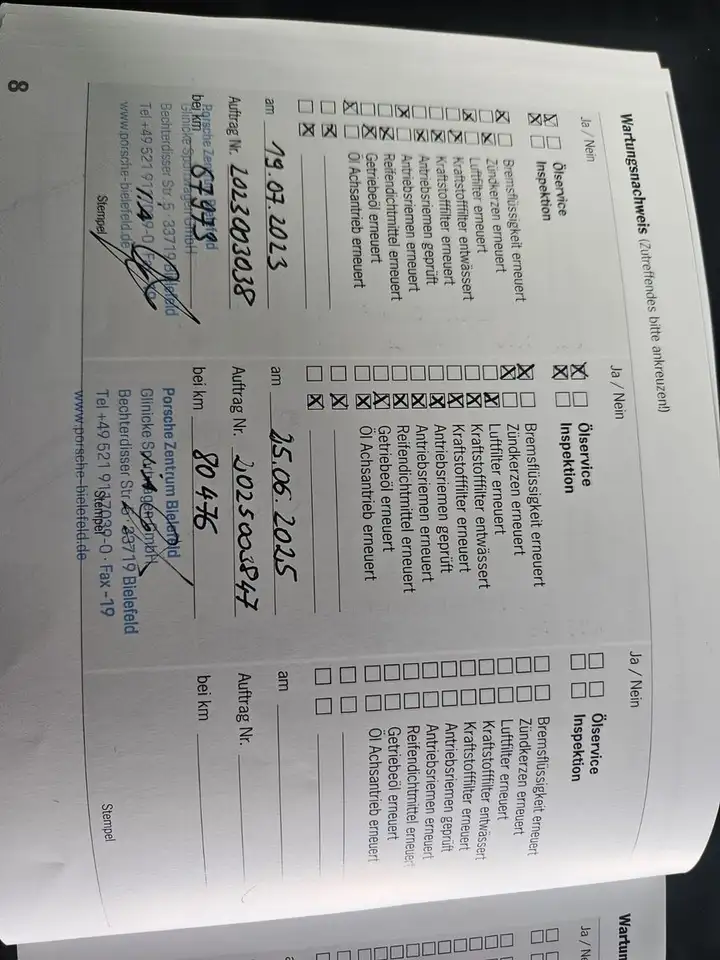 Wartungsnachweis (Zutreffendes bitte ankreuzen!)
Ja / Nein
Ölservice
Inspektion
Bremsflüssigkeit erneuert
Zündkerzen erneuert
Luftfilter erneuert
Kraftstofffilter entwässert
Kraftstofffilter erneuert
Antriebsriemen geprüft
Antriebsriemen erneuert
Reifendichtmittel erneuert
Getriebeöl erneuert
Öl Achsantrieb erneuert
am 19.07.2023
Auftrag Nr. 2023003038
bei km 67979
Porsche Zentrum Bielefeld
Glinicke Sportwagen GmbH
Bechterdisser Str. 5, 33719 Bielefeld
Tel +49 521 91
www.porsche-bielefeld.de
Stempel
Ja / Nein
Ölservice
Inspektion
Bremsflüssigkeit erneuert
Zündkerzen erneuert
Luftfilter erneuert
Kraftstofffilter entwässert
Kraftstofffilter erneuert
Antriebsriemen geprüft
Antriebsriemen erneuert
Reifendichtmittel erneuert
Getriebeöl erneuert
Öl Achsantrieb erneuert
am 25.06.2025
Auftrag Nr. 2025003847
bei km 80476
Porsche Zentrum Bielefeld
Glinicke Sportwagen GmbH
Bechterdisser Str. 5, 33719 Bielefeld
Tel +49 521 917039-0 · Fax -19
www.porsche-bielefeld.de
Stempel
Ja / Nein
Ölservice
Inspektion
Bremsflüssigkeit erneuert
Zündkerzen erneuert
Luftfilter erneuert
Kraftstofffilter entwässert
Kraftstofffilter erneuert
Antriebsriemen geprüft
Antriebsriemen erneuert
Reifendichtmittel erneuert
Getriebeöl erneuert
Öl Achsantrieb erneuert
am
Auftrag Nr.
bei km
Stempel
8
Wartun
Ja / Ne